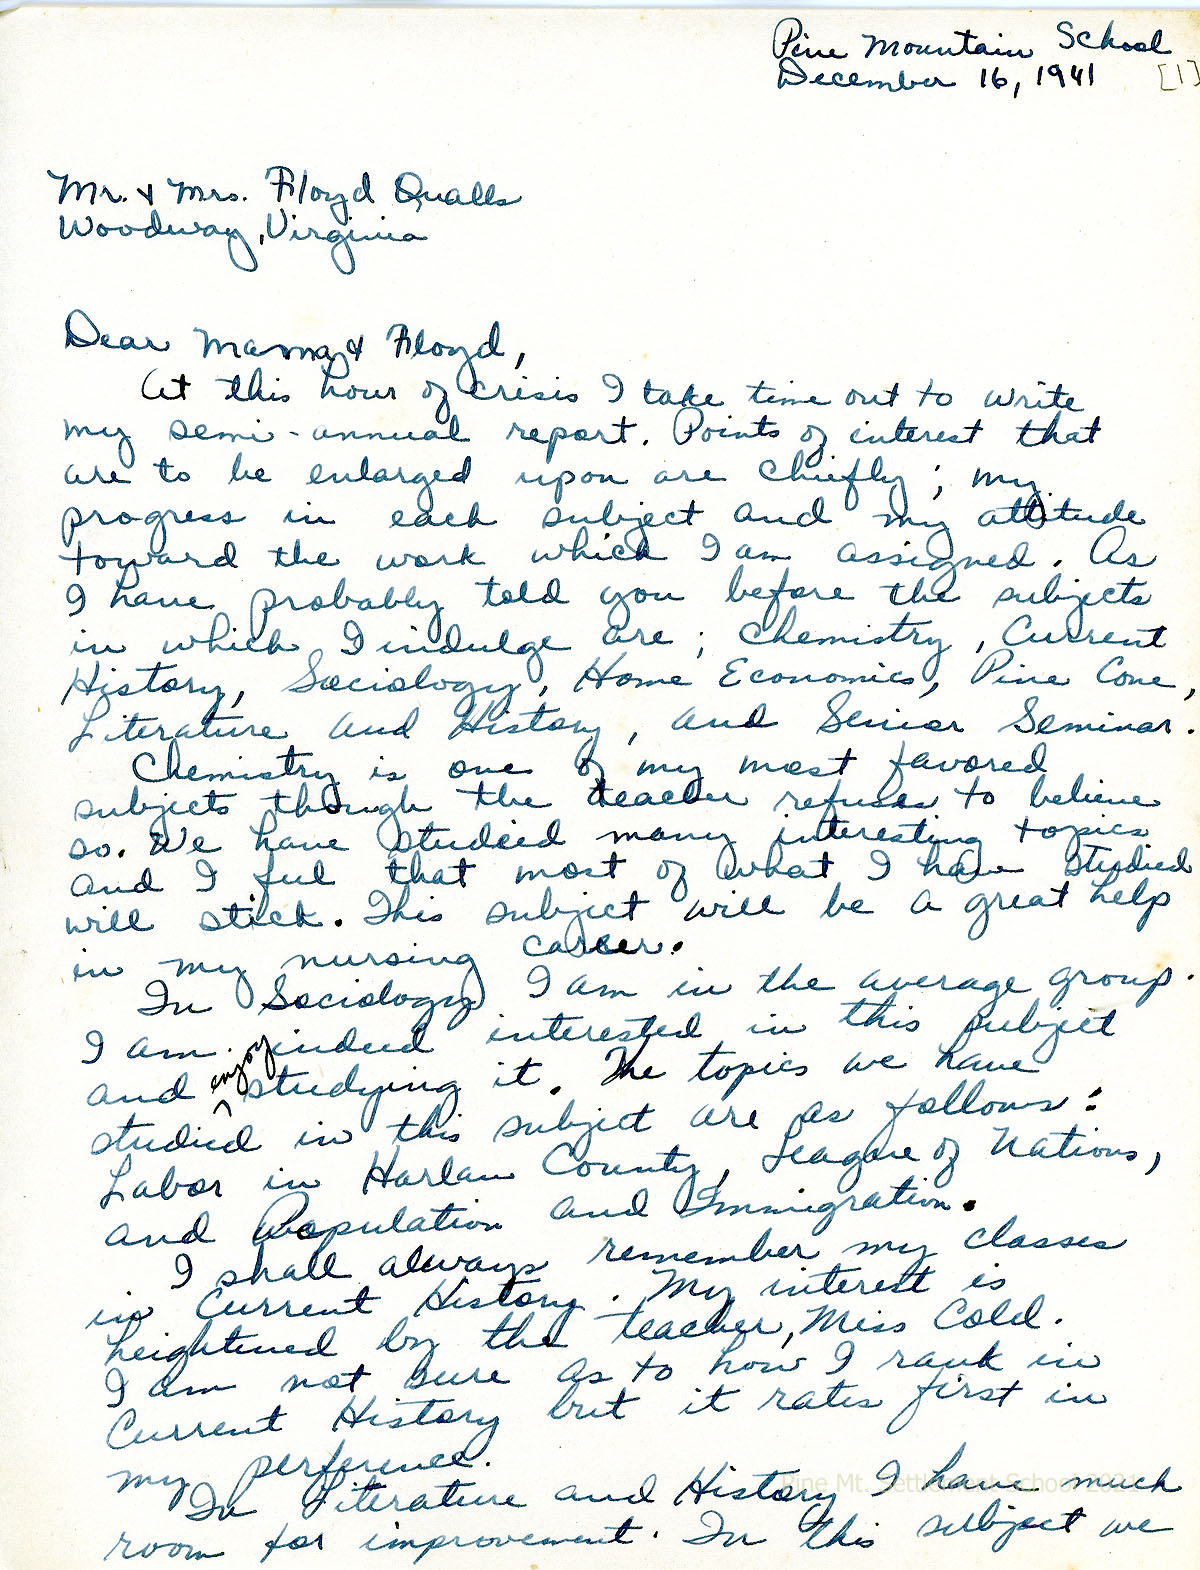 Pine Mountain School
December 16, 1941 [1]
Mr. & Mrs. Floyd Qualls
Woodway, Virginia
Dear Mama & Floyd,
At this hour of crisis I take time out to write
my semi-annual report. Points of interest that
are to be enlarged upon are chiefly; my
progress in each subject and my attitude
toward the work which I am assigned. As
I have probably told you before the subjects
in which I indulge are; Chemistry, Current
History, Sociology, Home Economics, Pine Cone,
Literature and History, and Senior Seminar.
Chemistry is one of my most favored
subjects though the teacher refuses to believe
so. We have studied many interesting topics
and I feel that most of what I have studied
will stick. This subject will be a great help
in my nursing career.
In Sociology I am in the average group.
I am indeed interested in this subject
and enjoy studying it. The topics we have
studied in this subject are as follows:
Labor in Harlan County, League of Nations,
and Population and Immigration.
I shall always remember my classes
in Current History. My interest is
heightened by the teacher, Miss Cold.
I am not sure as to how I rank in
Current History but it rates first in
my perference.
Pine Mt. Settlement School 2021
In Literature and History I have much
room for improvement. In this subject we